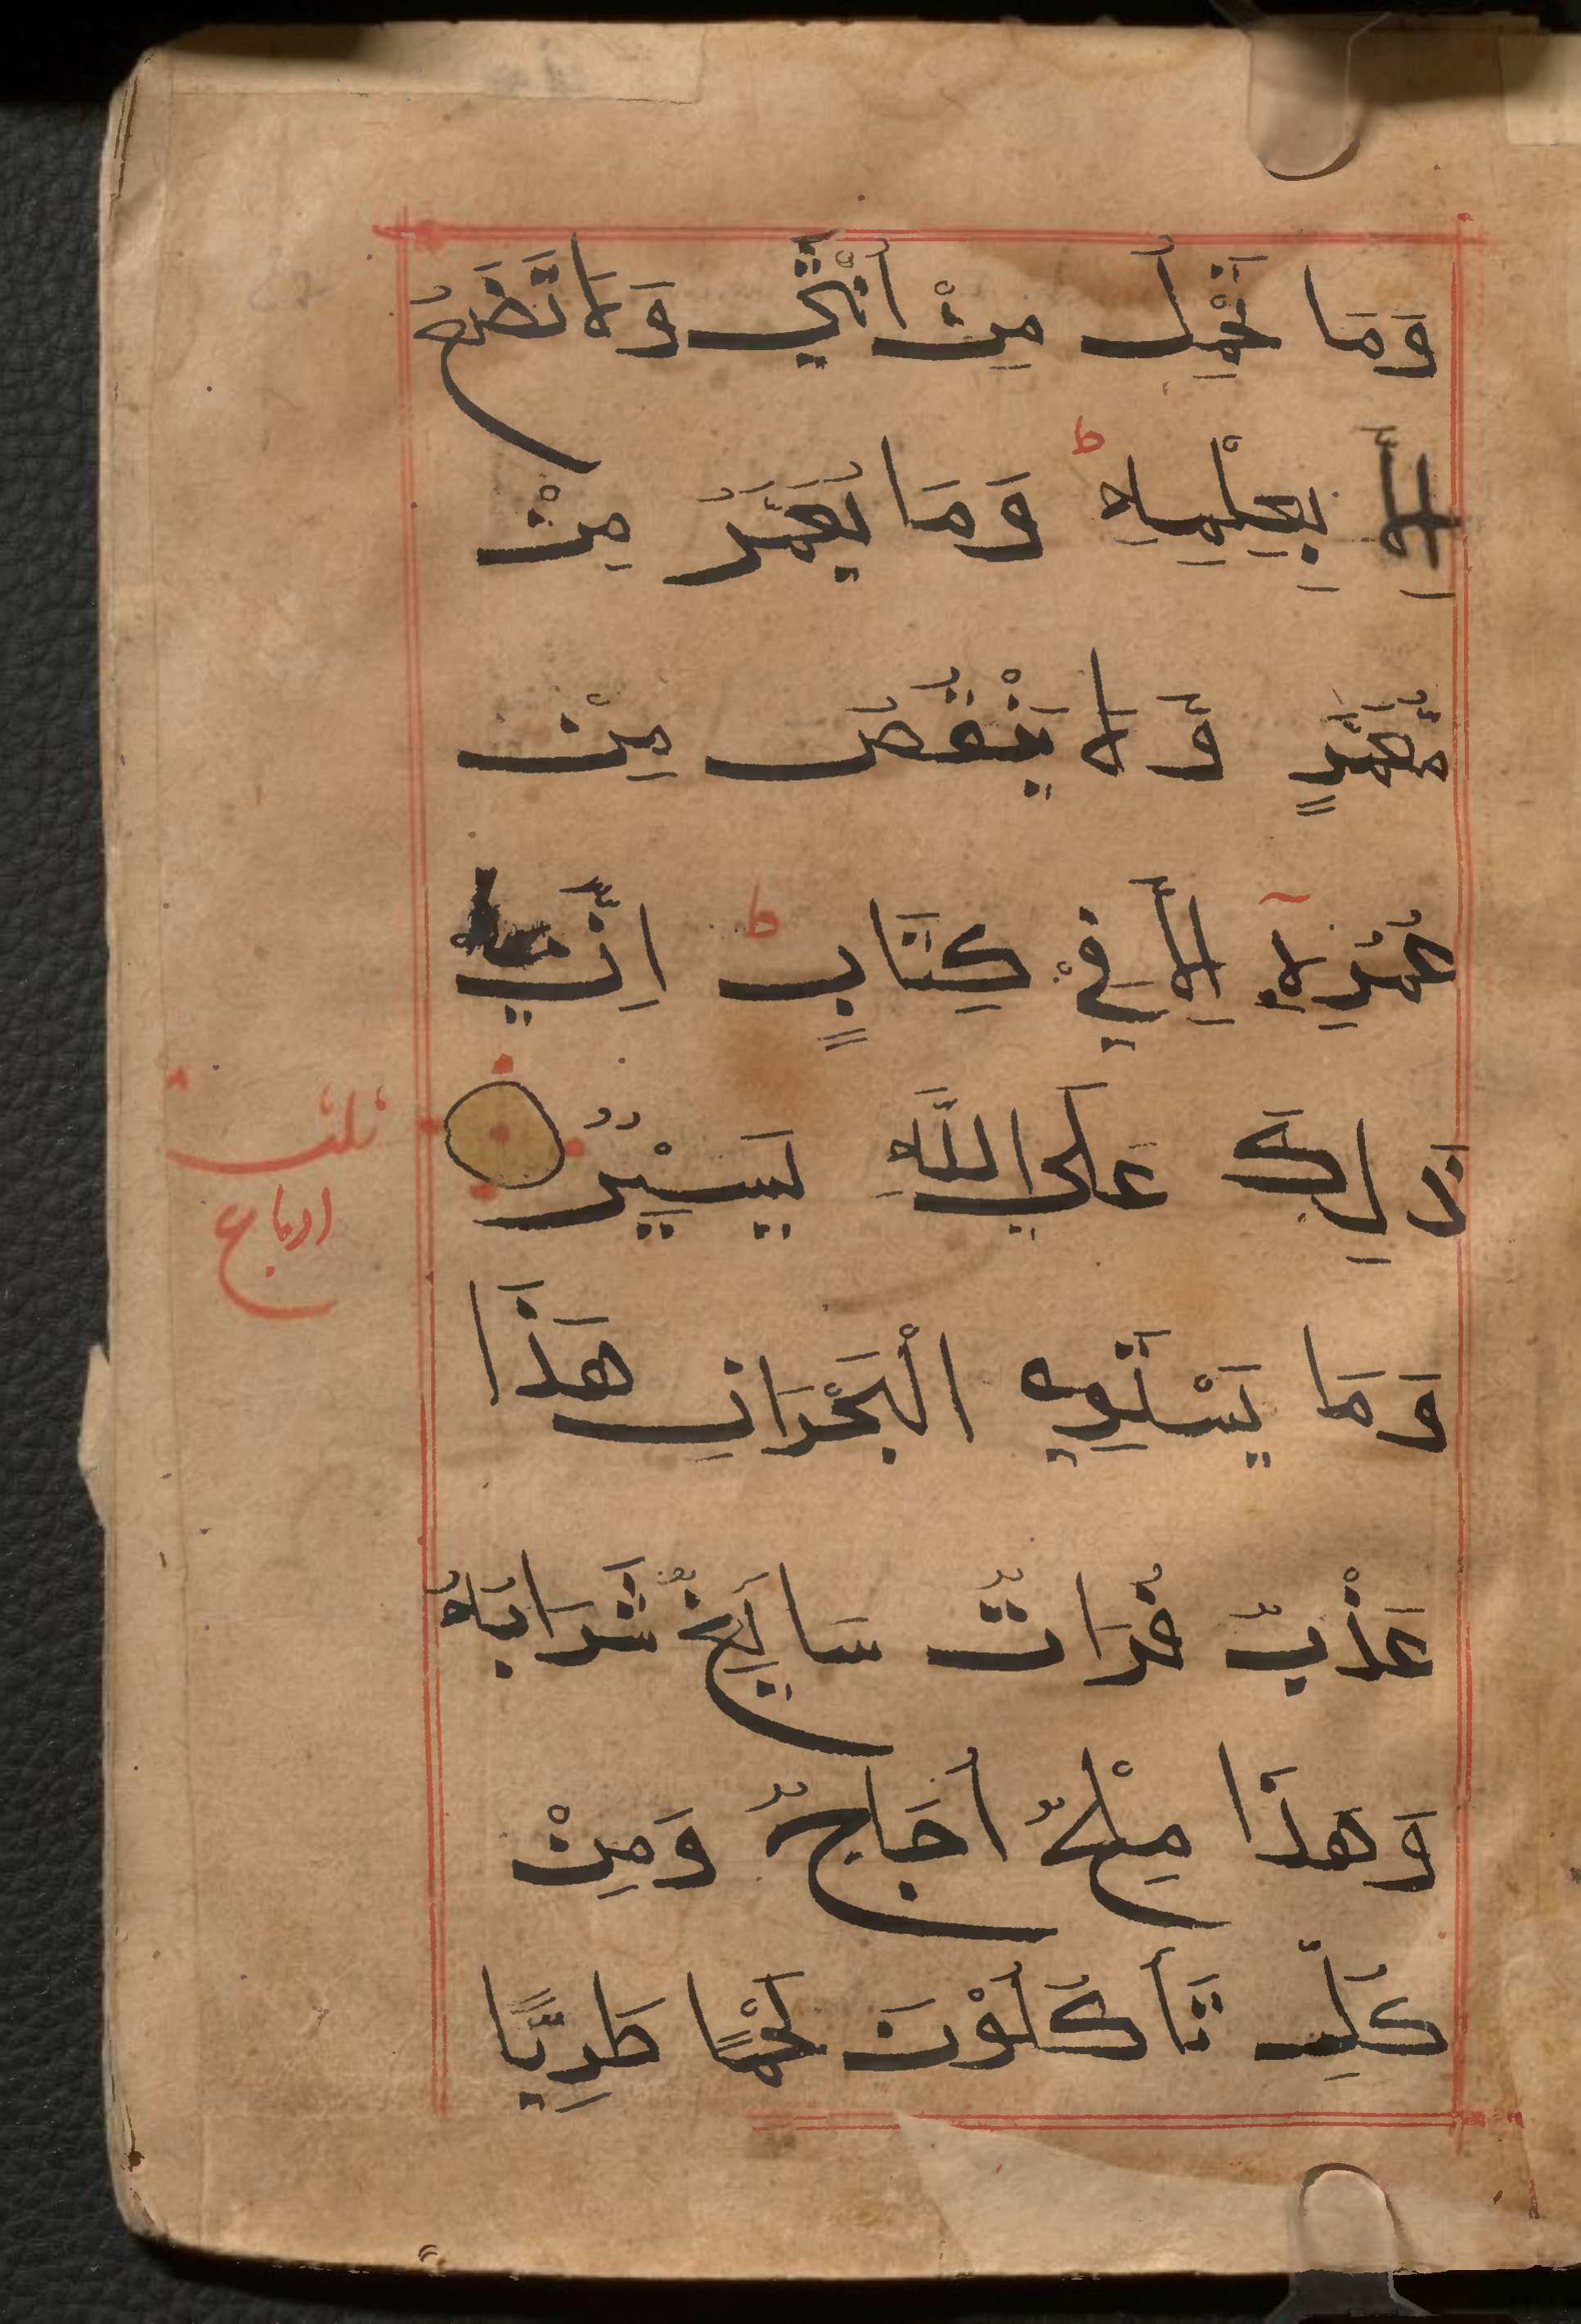 وَمَا تَحْمِلُ مِنْ اُنْثَىٰ وَلَا تَضَعُ
اِلَّا بِعِلْمِهِ ط وَمَا يُعَمَّرُ مِنْ
مُّعَمَّرٍ وَّلَا يُنْقَصُ مِنْ
عُمُرِهٖ اِلَّا فِيْ كِتَابٍ ط اِنَّ
ذَالِكَ عَلَي اللَّهِ يَسِيْرٌ
ثلث
ارباع
وَمَا يَسْتَوِي الْبَحْرَانِ هَذَا
عَذْبٌ فُرَاتٌ سَايِغٌ شَرَابُهُ
وَهَذَا مِلْحٌ اُجَاجٌ وَمِنْ
كُلٍّ تَأكُلُوْنَ لَحْمًا طَرِيًّا